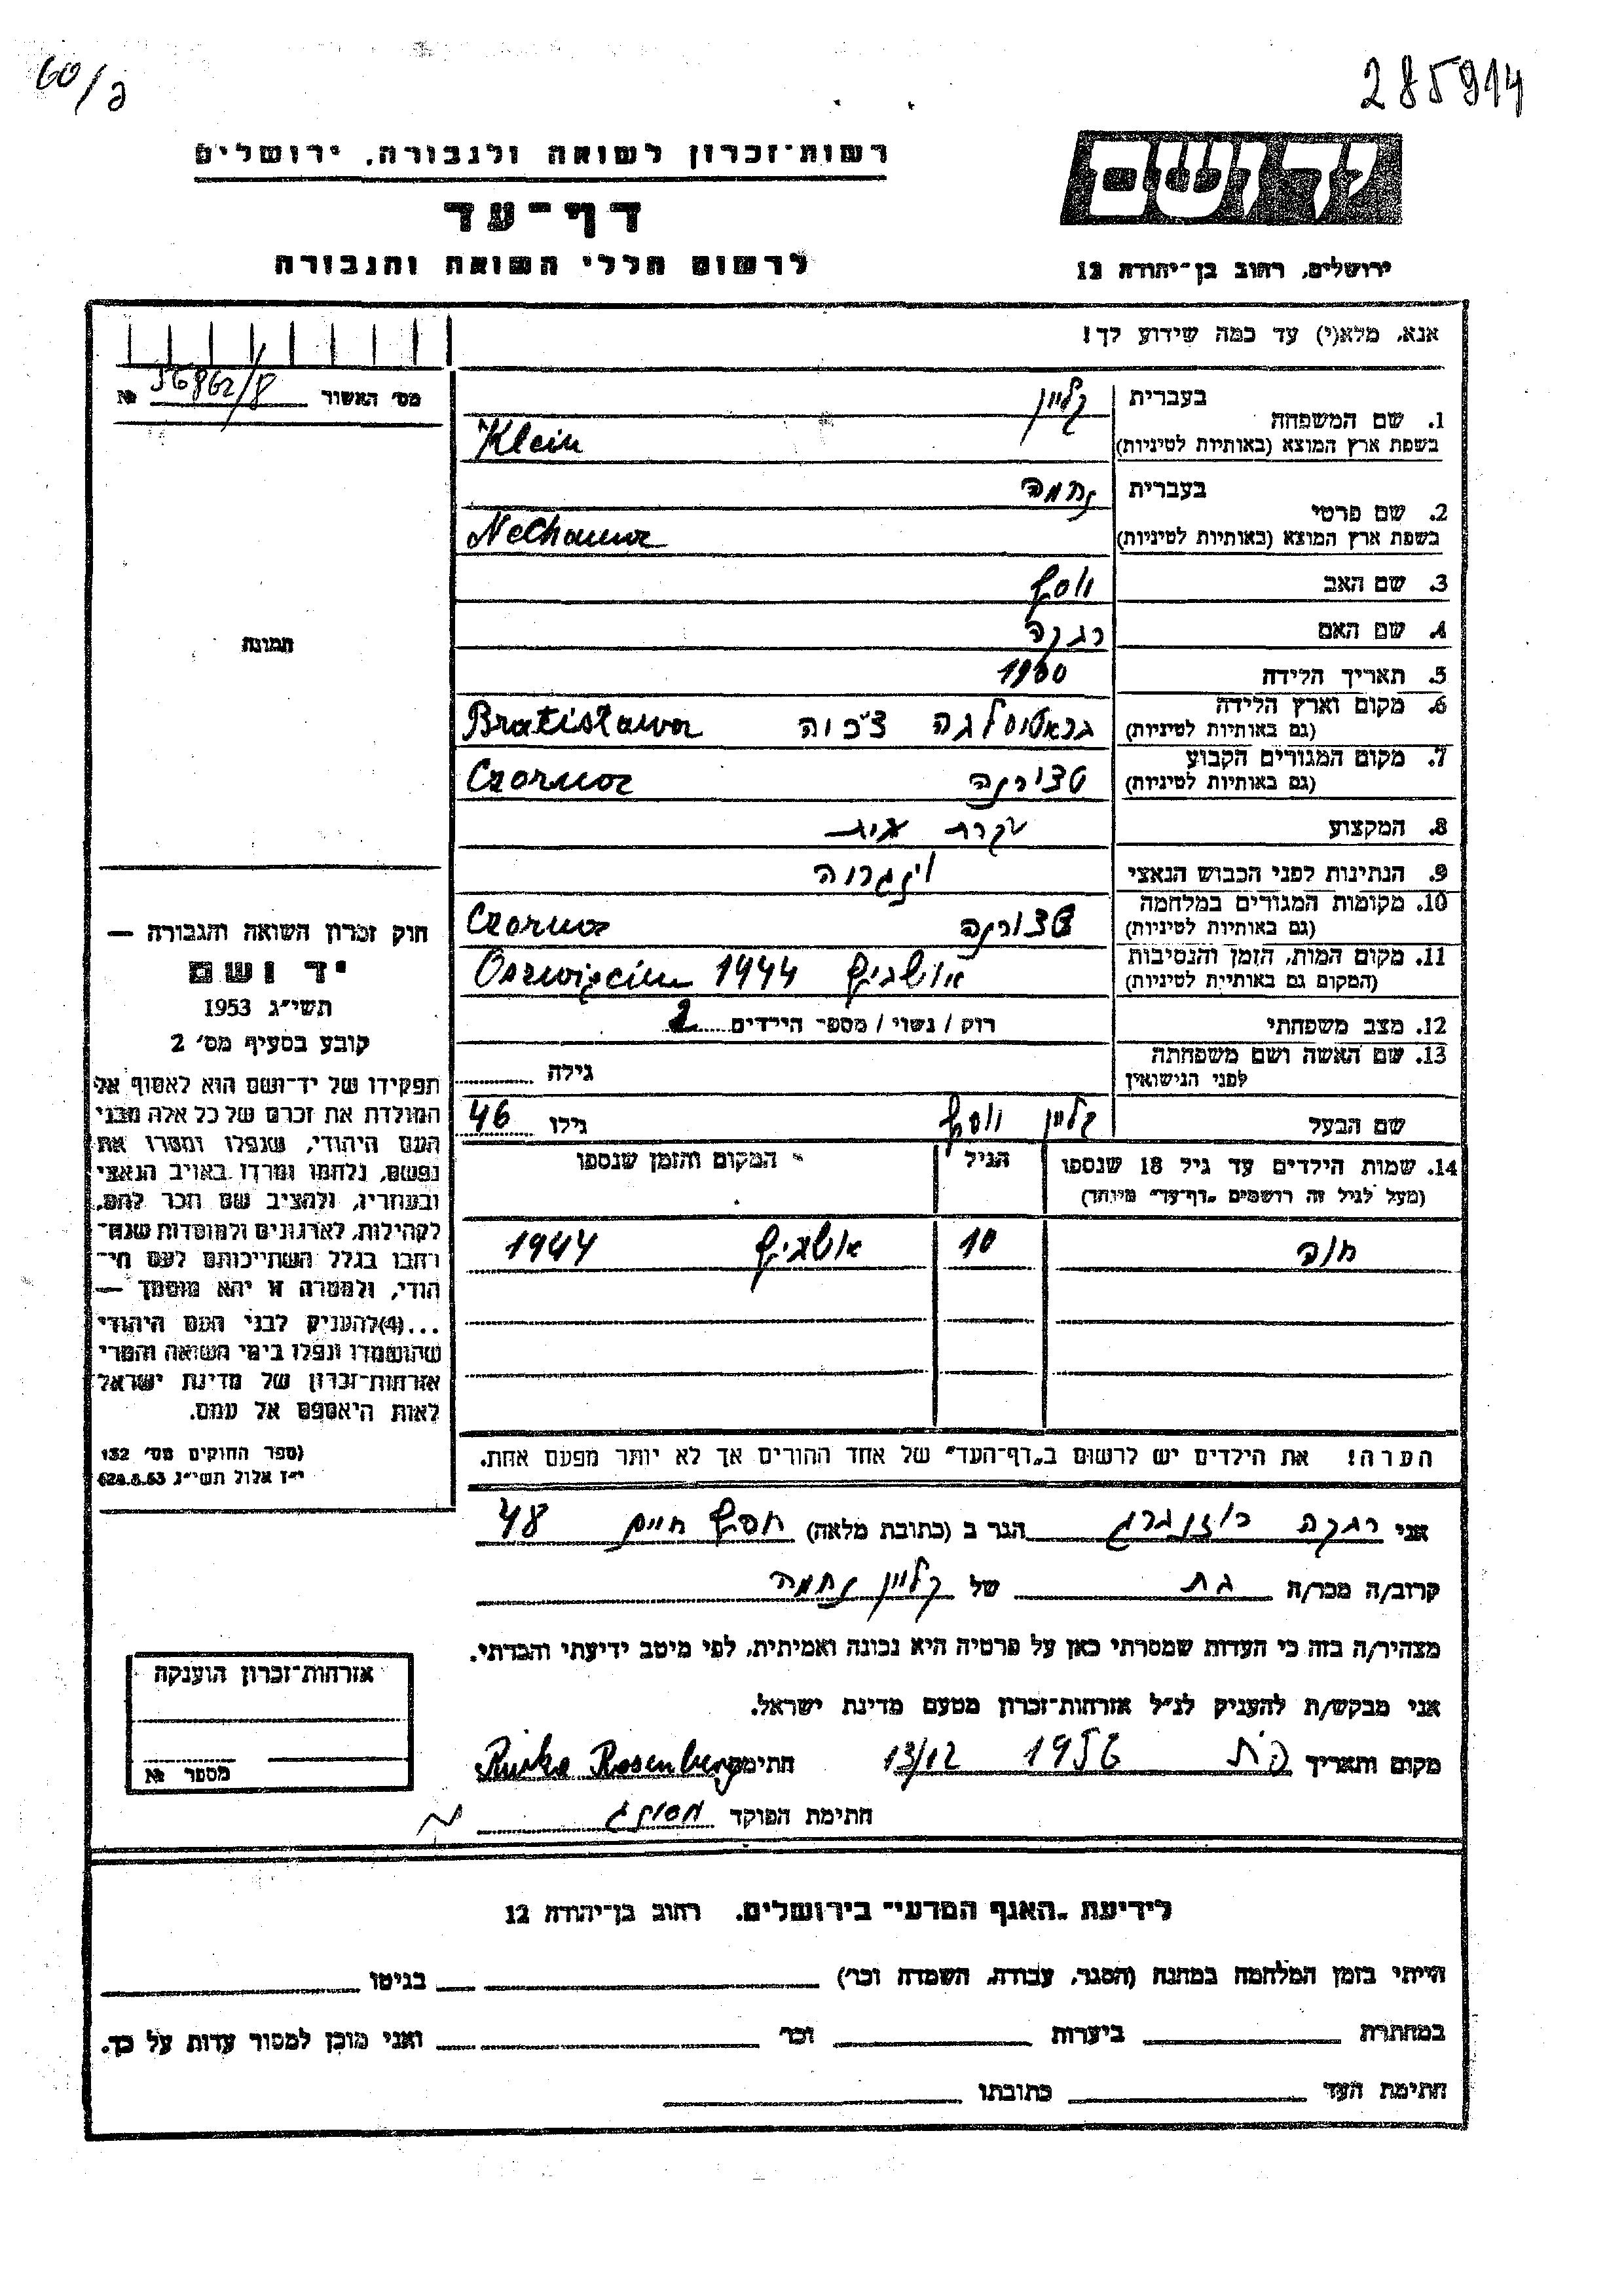 60/ג
285914
יד ושם
רשות־זכרון לשואה ולגבורה, ירושלים
דף־עד
לרשום חללי השואה והגבורה
ירושלים, רחוב בן־יהודה 12
אנא, מלא(י) עד כמה שידוע לך!
מס׳ האשור 56862/8 №
1. שם המשפחה
בעברית קליין
בשפת ארץ המוצא (באותיות לטיניות) Klein
2. שם פרטי
בעברית נחמה
בשפת ארץ המוצא (באותיות לטיניות) Nechama
3. שם האב יוסף
4. שם האם רבקה
5. תאריך הלידה 1900
6. מקום וארץ הלידה
(גם באותיות לטיניות) בראטיסלבה צ'כיה Bratisława
7. מקום המגורים הקבוע
(גם באותיות לטיניות) טצ'ורנה Czorna
8. המקצוע עקרת בית
9. הנתינות לפני הכבוש הנאצי
10. מקומות המגורים במלחמה
(גם באותיות לטיניות) טצ'ורנה Czorna
11. מקום המות, הזמן והנסיבות
(המקום גם באותיית לטיניות) אושביץ 1944 Oszwięcim
12. מצב משפחתי רוק / נשוי / מספר הילדים 2
13. שם האשה ושם משפחתה
לפני הנישואין גילה
שם הבעל קליין יוסף גילו 46
14. שמות הילדים עד גיל 18 שנספו הגיל המקום והזמן שנספו
(מעל לגיל זה רושמים „דף־עד״ מיוחד)
חוה 10 אושביץ 1944
הערה! את הילדים יש לרשום ב„דף־העד״ של אחד ההורים אך לא יותר מפעם אחת.
תמונה
חוק זכרון השואה והגבורה —
יד ושם
תשי״ג 1953
קובע בסעיף מס׳ 2
תפקידו של יד־ושם הוא לאסוף אל
המולדת את זכרם של כל אלה מבני
העם היהודי, שנפלו ומסרו את
נפשם, נלחמו ומרדו באויב הנאצי
ובעוזריו, ולהציב שם וזכר להם,
לקהילות, לארגונים ולמוסדות שנח־
רבו בגלל השתייכותם לעם הי־
הודי, ולמטרה זו יהא מוסמך —
...(4)להעניק לבני העם היהודי
שהושמדו ונפלו בימי השואה והמרי
אזרחות־זכרון של מדינת ישראל
לאות היאספם אל עמם.
(ספר החוקים מס׳ 132
י״ז אלול תשי״ג 28.8.53)
אני רבקה רוזנברג הגר ב (כתובת מלאה) חסוף חיים 48
קרוב/ה מכר/ה בת של קליין נחמה
מצהיר/ה בזה כי העדות שמסרתי כאן על פרטיה היא נכונה ואמיתית, לפי מיטב ידיעתי והכרתי.
אני מבקש/ת להעניק לנ״ל אזרחות־זכרון מטעם מדינת ישראל.
מקום ותאריך 1956 13/12 חתימה Riwka Rosenberg
חתימת הפוקד
אזרחות־זכרון הוענקה
מספר №
לידיעת „האגף המדעי״ בירושלים, רחוב בן־יהודה 12
הייתי בזמן המלחמה במחנה (הסגר, עבודה, השמדה וכו׳) בגיטו
במחתרת ביערות וכו׳ ואני מוכן למסור עדות על כך.
חתימת העד כתובתו